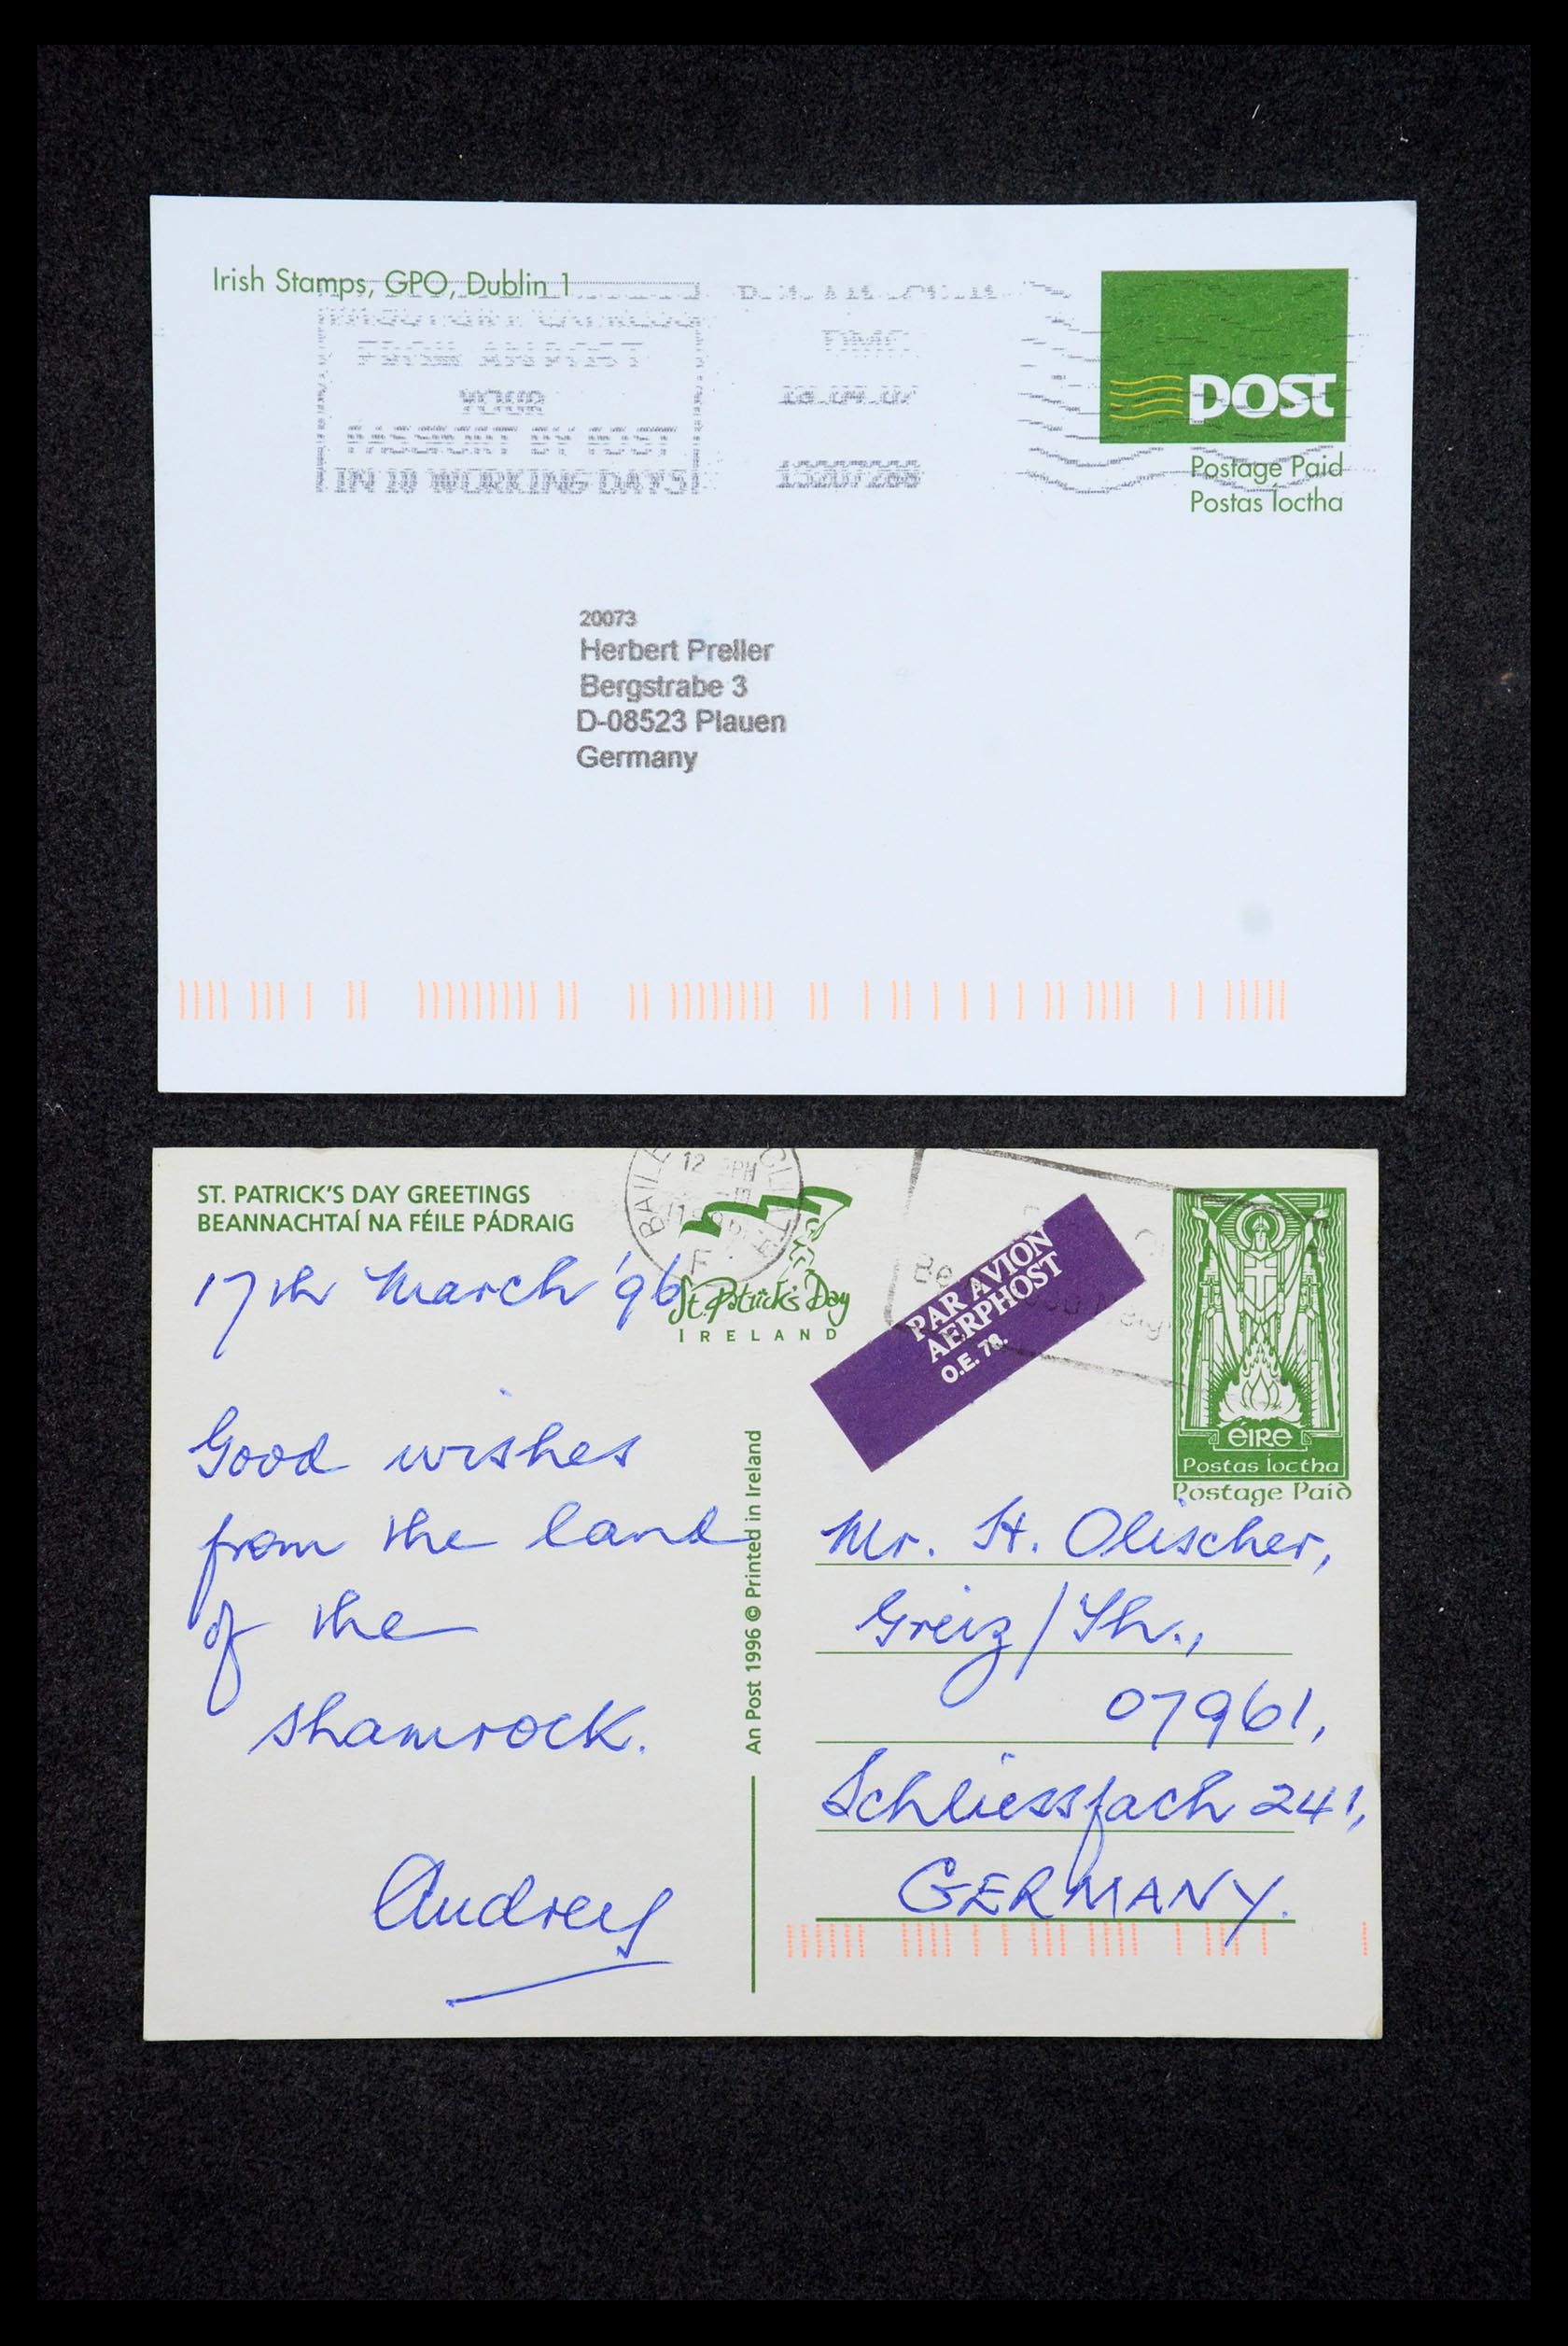 Irish Stamps, GPO, Dublin 1
FROM AN POST
YOUR
PASSPORT BY POST
IN 10 WORKING DAYS
DMC
18.04.07
13207268
POST
Postage Paid
Postas Íoctha
20073
Herbert Preller
Bergstrabe 3
D-08523 Plauen
Germany
ST. PATRICK'S DAY GREETINGS
BEANNACHTAÍ NA FÉILE PÁDRAIG
BAILE
12 PM
F
St. Patrick's Day
IRELAND
PAR AVION
AERPHOST
O.E. 78.
éIRe
Postas Íoctha
Postage Paid
17th March '96
Good wishes
from the land
of the
shamrock.
Audrey
An Post 1996 © Printed in Ireland
Mr. H. Olischer,
Greiz/Th.,
07961,
Schliessfach 241,
GERMANY.